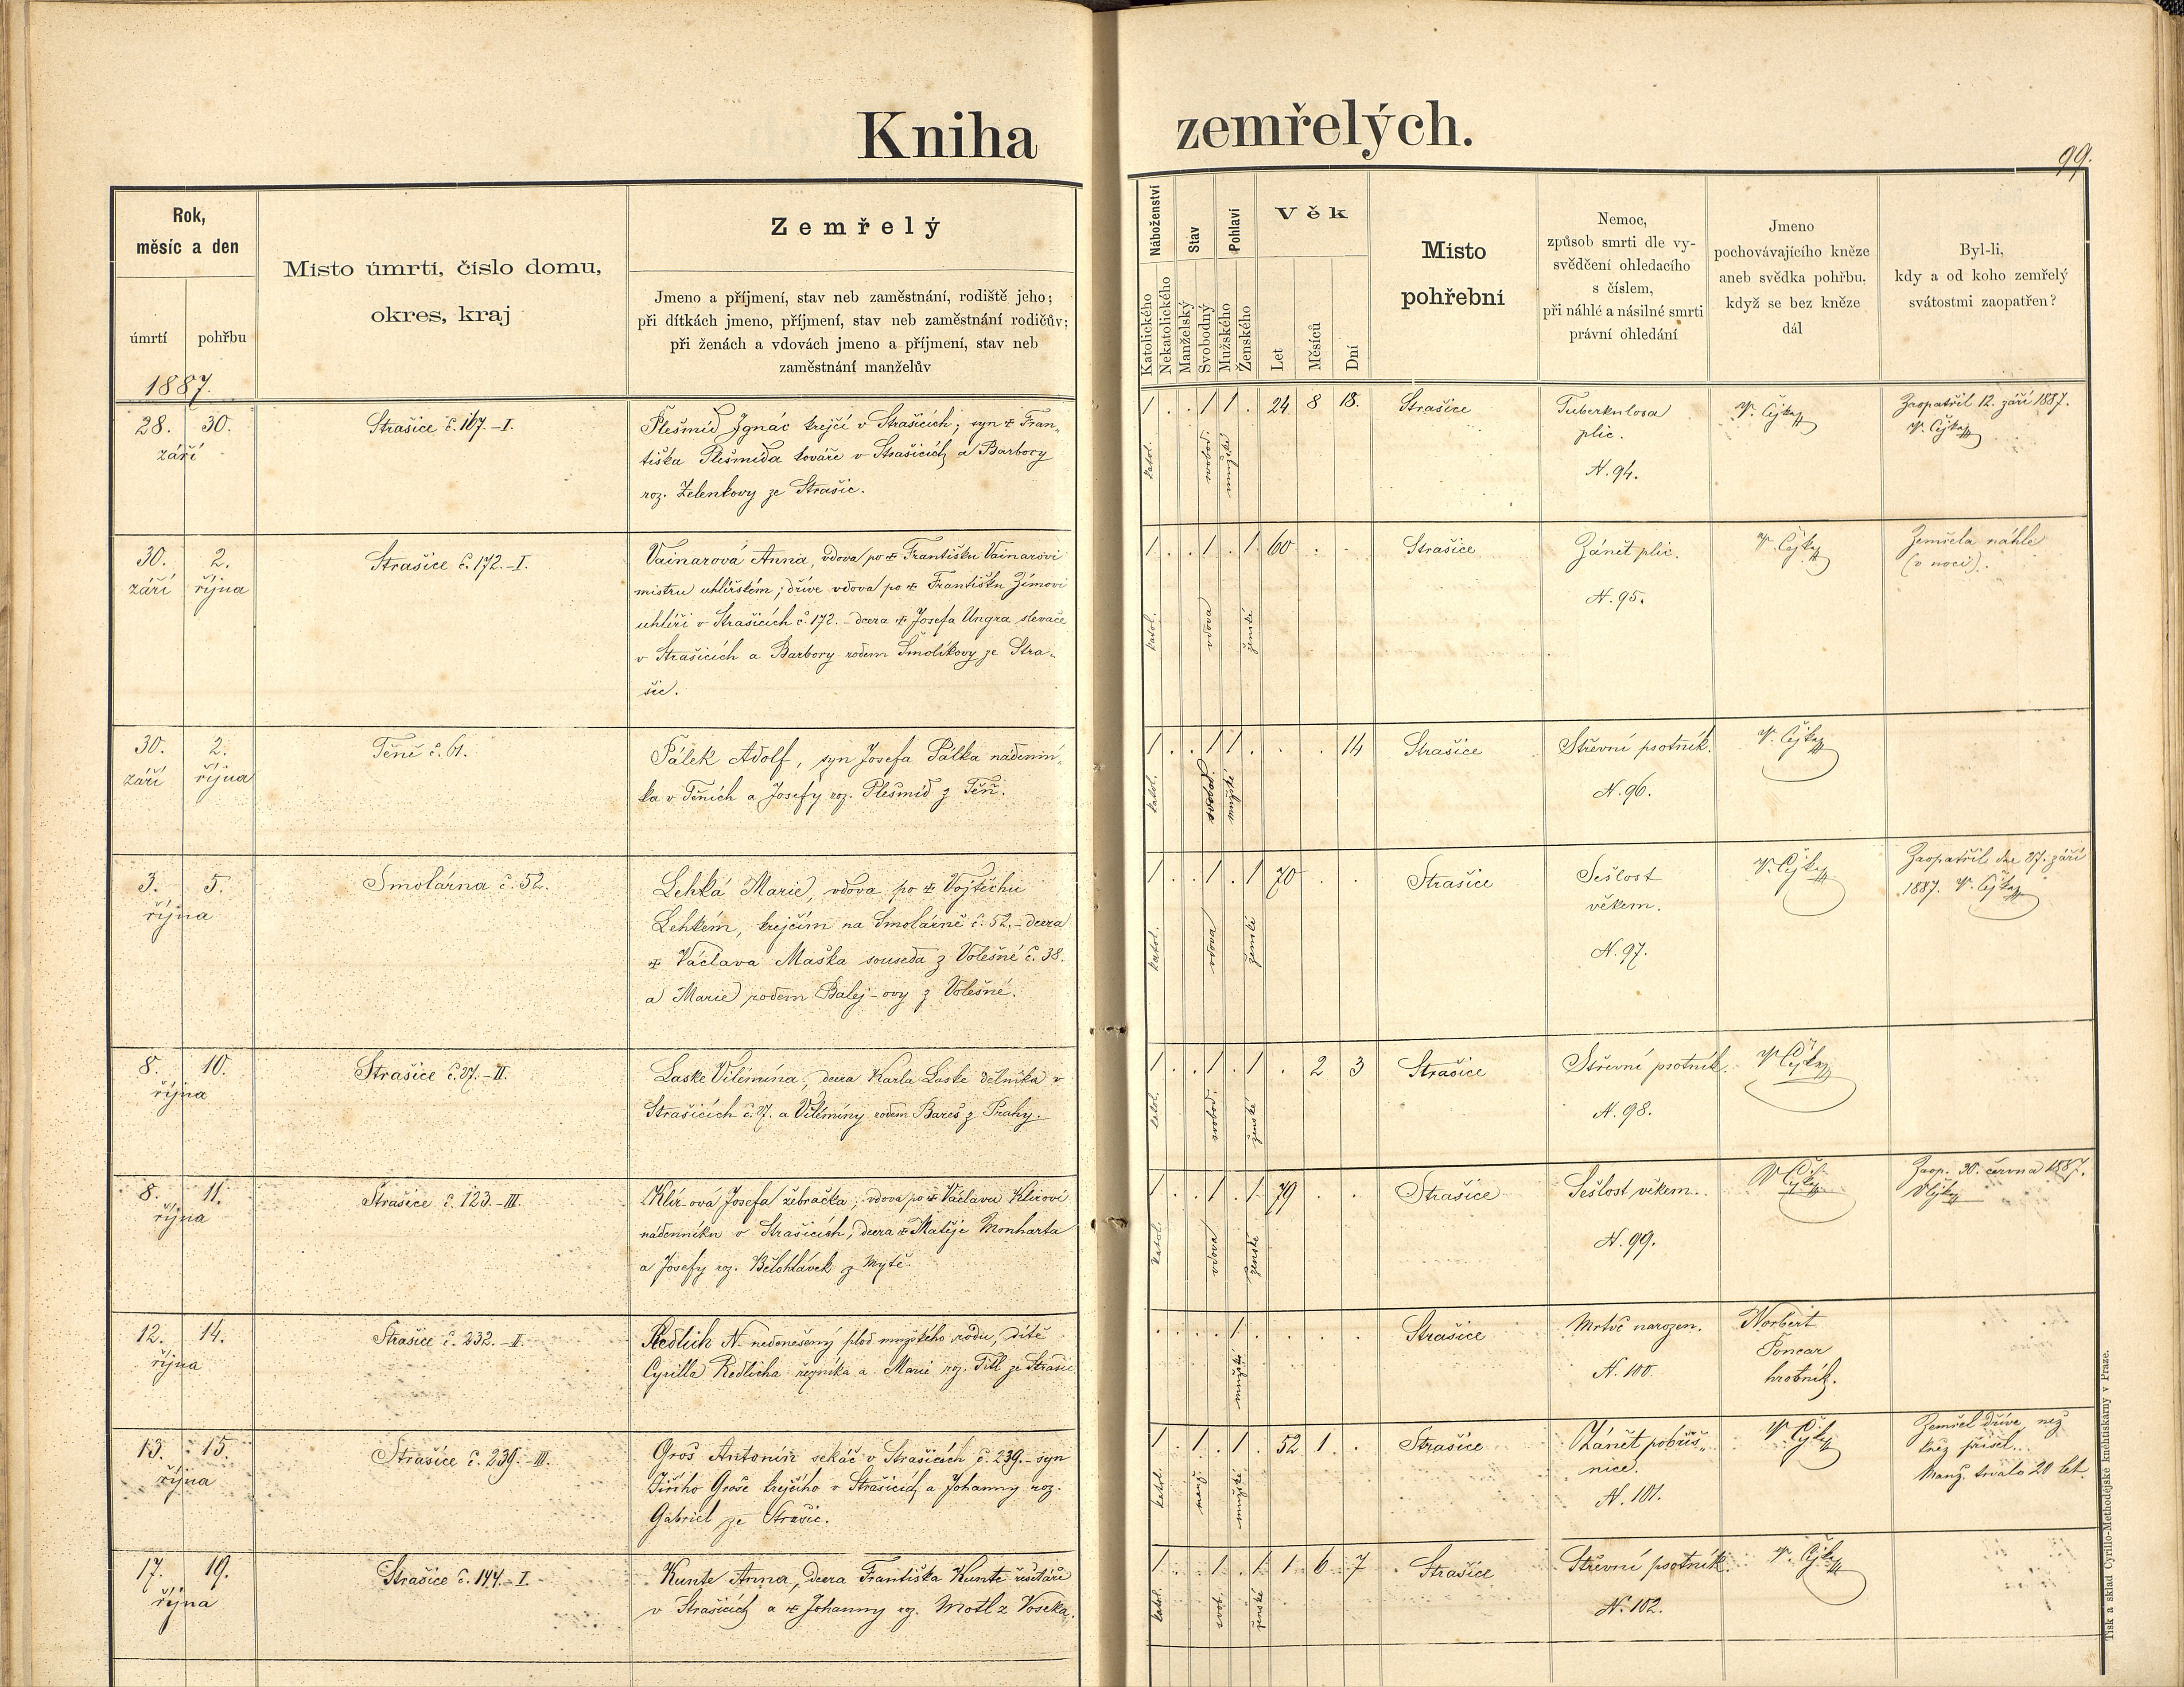 Kniha zemřelých.
99.
Rok,
měsíc a den
úmrtí
pohřbu
1887.
Místo úmrtí, číslo domu,
okres, kraj
Zemřelý
Jmeno a příjmení, stav neb zaměstnání, rodiště jeho;
při dítkách jmeno, příjmení, stav neb zaměstnání rodičův;
při ženách a vdovách jmeno a příjmení, stav neb
zaměstnání manželův
Náboženství
Katolického
Nekatolického
Stav
Manželský
Svobodný
Pohlaví
Mužského
Ženského
Věk
Let
Měsíců
Dní
Místo
pohřební
Nemoc,
způsob smrti dle vy-
svědčení ohledacího
s číslem,
při náhlé a násilné smrti
právní ohledání
Jmeno
pochovávajícího kněze
aneb svědka pohřbu.
když se bez kněze
dál
Byl-li,
kdy a od koho zemřelý
svátostmi zaopatřen?
28. 30.
září
Strašice č. 167.-I.
Plešmid Ignác krejčí v Strašicích; syn † Fran-
tiška Plešmida kováře v Strašicích a Barbory
roz. Zelenkovy ze Strašic.
1 . . 1 1 . 24 8 18.
katol. svobod. mužské
Strašice
Tuberkulosa
plic.
N. 94.
V. Čejka
Zaopatřil 12. září 1887.
V. Čejka
30. 2.
září října
Strašice č. 172.-I.
Vainarová Anna, vdova po † Františku Vainarovi
mistru uhlířském; dříve vdova po † Františku Zímovi
uhlíři v Strašicích č. 172. - dcera † Josefa Ungra slevače
v Strašicích a Barbory rodem Smolíkovy ze Stra-
šic.
1 . . 1 . 1 60 . .
katol. vdova ženské
Strašice
Zánět plic.
N. 95.
V. Čejka
Zemřela náhle
(v noci).
30. 2.
září října
Těně č. 61.
Pálek Adolf, syn Josefa Pálka nádenní-
ka v Těních a Josefy roz. Plešmid z Těň.
1 . . 1 1 . . . 14
katol. svobod. mužské
Strašice
Střevní psotník.
N. 96.
V. Čejka
3. 5.
října
Smolárna č. 52.
Lehká Marie, vdova po † Vojtěchu
Lehkém, krejčím na Smolárně č. 52. - dcera
† Václava Maška souseda z Volešné č. 38.
a Marie rodem Balej-ovy z Volešné.
1 . . 1 . 1 70 . .
katol. vdova ženské
Strašice
Sešlost
věkem.
N. 97.
V. Čejka
Zaopatřil dne 27. září
1887. V. Čejka
8. 10.
října
Strašice č. 27.-II.
Laske Vilémína, dcera Karla Laske dělníka v
Strašicích č. 27. a Vilémíny rodem Bareš z Prahy.
1 . . 1 . 1 . 2 3
katol. svobod. ženské
Strašice
Střevní psotník.
N. 98.
V. Čejka
8. 11.
října
Strašice č. 123.-III.
Klír-ová Josefa žebračka, vdova po † Václavu Klírovi
nádenníku v Strašicích; dcera † Matěje Monharta
a Josefy roz. Bělohlávek z Mýtě.
1 . . 1 . 1 79 . .
katol. vdova ženské
Strašice
Sešlost věkem.
N. 99.
V. Čejka
Zaop. 30. června 1887.
V. Čejka
12. 14.
října
Strašice č. 232.-II.
Redlich N. nedonešený plod mužského rodu, dítě
Cyrilla Redlicha řezníka a Marie roz. Titl ze Strašic
. . . . 1 . . . .
mužské
Strašice
Mrtvě narozen.
N. 100.
Norbert
Foncar
hrobník.
13. 15.
října
Strašice č. 239.-III.
Groš Antonín sekáč v Strašicích č. 239. - syn
Jiřího Groše krejčího v Strašicích a Johanny roz.
Gabriel ze Strašic.
1 . 1 . 1 . 52 1 .
katol. manž. mužské
Strašice
Zánět pobřiš-
nice.
N. 101.
V. Čejka
Zemřel dříve než
kněz přišel.
Manž. trvalo 20 let.
17. 19.
října
Strašice č. 144.-I.
Kunte Anna, dcera Františka Kunte řešetáře
v Strašicích a † Johanny roz. Motl z Voseka.
1 . . 1 . 1 1 6 7
katol. svob. ženské
Strašice
Střevní psotník.
N. 102.
V. Čejka
Tisk a sklad Cyrillo-Methodějské kněhtiskárny v Praze.